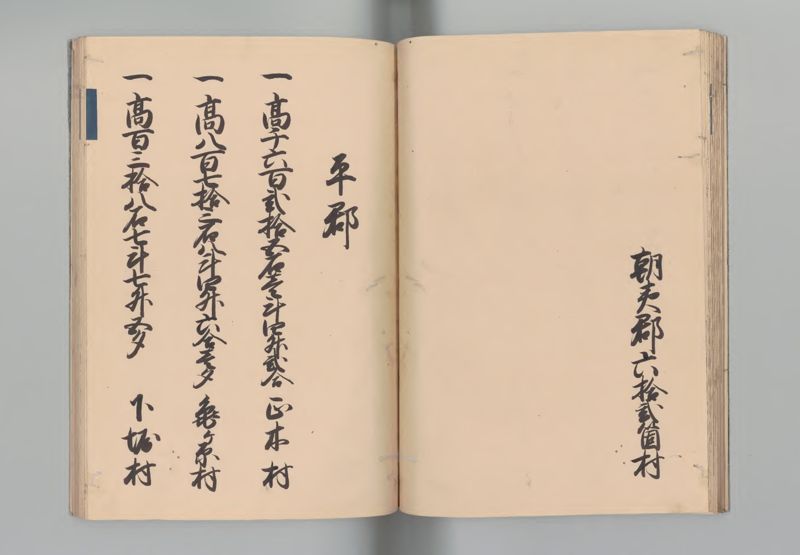 朝夷郡六拾弐箇村
平郡
一高千六百弐拾五石壱斗四升弐合 正木村
一高八百七拾二石八斗四升六合壱夕 亀ケ原村
一高百三拾八石七斗七升五夕 下堀村